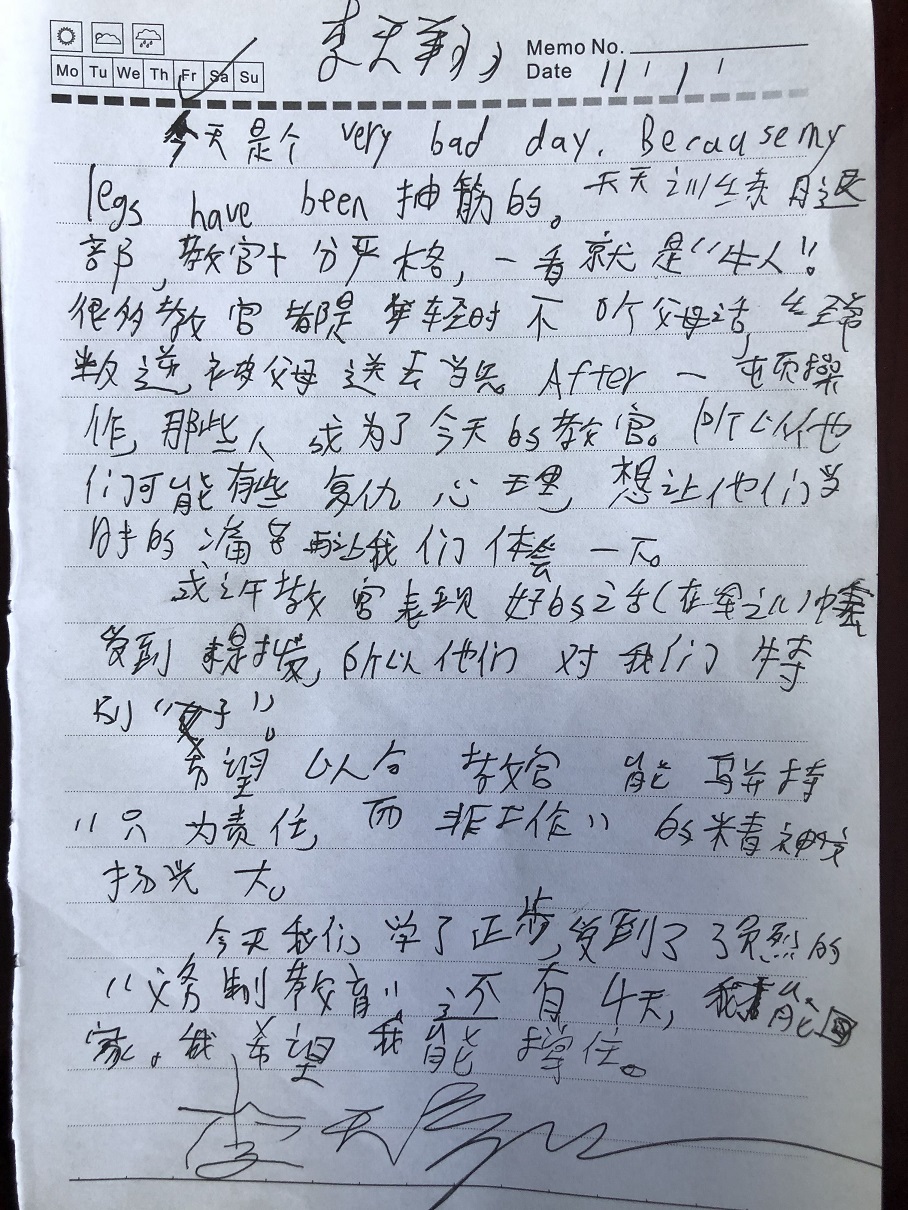 李天翔
Memo No.
Mo Tu We Th Fr Sa Su
Date 11' 1 '
今天是个 very bad day. Because my
legs have been 抽筋的。天天训练腿
部,教官十分严格,一看就是“牛人”!
很多教官都是年轻时不听父母话,经常
叛逆,被父母送去当兵。After 一顿操
作,那些人成为了今天的教官。所以他
们可能有些复仇心理,想让他们当
时的痛苦再让我们体会一下。
或许教官表现好的话(在军训中)会
受到提拔,所以他们对我们特
别“好”。
希望以后教官能保持
“只为责任,而非工作”的精神发
扬光大。
今天我们学了正步,受到了强烈的
“义务制教育”,还有4天,我才能回
家。我希望我能撑住。
李天翔